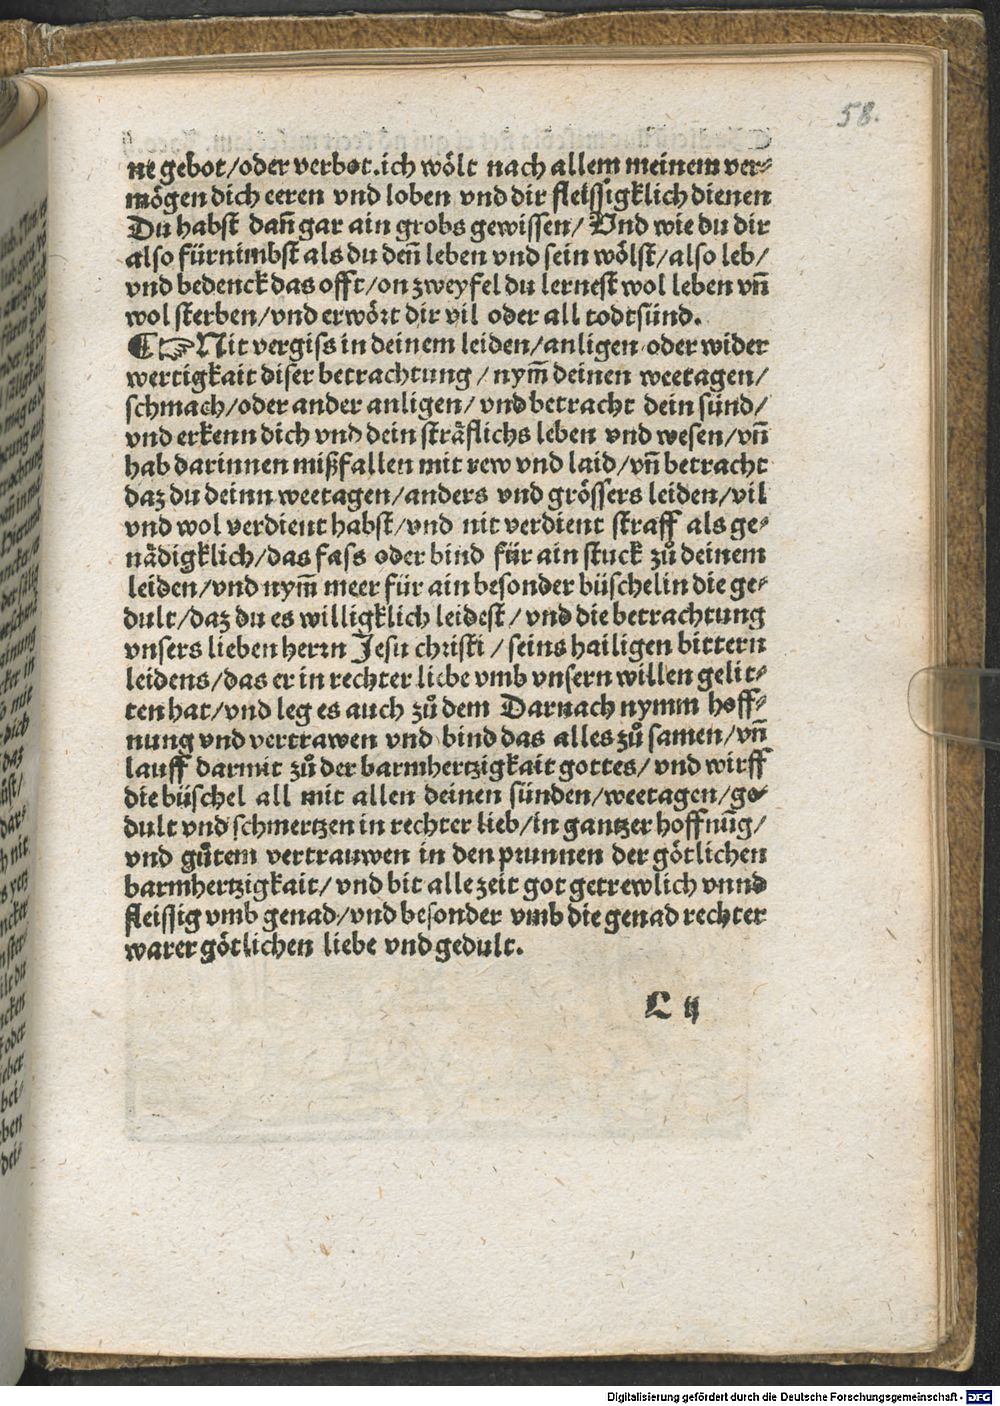 58.
ne gebot/oder verbot.ich wölt nach allem meinem ver⸗
mögen dich eeren vnd loben vnd dir fleissigklich dienen
Du habst dañ gar ain grobs gewissen/ Vnd wie du dir
also fürnimbst als du deñ leben vnd sein wölst/also leb/
vnd bedenck das offt/on zweyfel du lernest wol leben vñ
wol sterben/vnd erwört dir vil oder all todtsünd.
¶ ☞ Nit vergiss in deinem leiden/anligen oder wider
wertigkait diser betrachtung/nym̃ deinen weetagen/
schmach/oder ander anligen/vnd betracht dein sünd/
vnd erkenn dich vnd dein sträflichs leben vnd wesen/vñ
hab darinnen mißfallen mit rew vnd laid/vñ betracht
daz du deinn weetagen/anders vnd grössers leiden/vil
vnd wol verdient habst/vnd nit verdient straff als ge⸗
nädigklich/das fass oder bind für ain stuck zů deinem
leiden/vnd nym̃ meer für ain besonder büschelin die ge⸗
dult/daz du es willigklich leidest/vnd die betrachtung
vnsers lieben herrn Jesu christi/seins hailigen bittern
leidens/das er in rechter liebe vmb vnsern willen gelit⸗
ten hat/vnd leg es auch zů dem Darnach nymm hoff⸗
nung vnd vertrawen vnd bind das alles zů samen/vñ
lauff darmit zů der barmhertzigkait gottes/vnd wirff
die büschel all mit allen deinen sünden/weetagen/ge⸗
dult vnd schmertzen in rechter lieb/in gantzer hoffnũg/
vnd gůtem vertrauwen in den prunnen der götlichen
barmhertzigkait/vnd bit alle zeit got getrewlich vnnd
fleissig vmb genad/vnd besonder vmb die genad rechter
warer götlichen liebe vnd gedult.
L ij
Digitalisierung gefördert durch die Deutsche Forschungsgemeinschaft - DFG